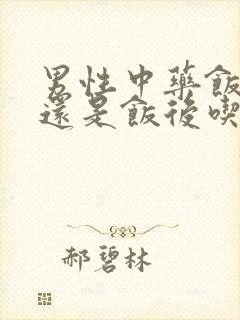 男性中藥飯
還是飯後喫
郝碧林